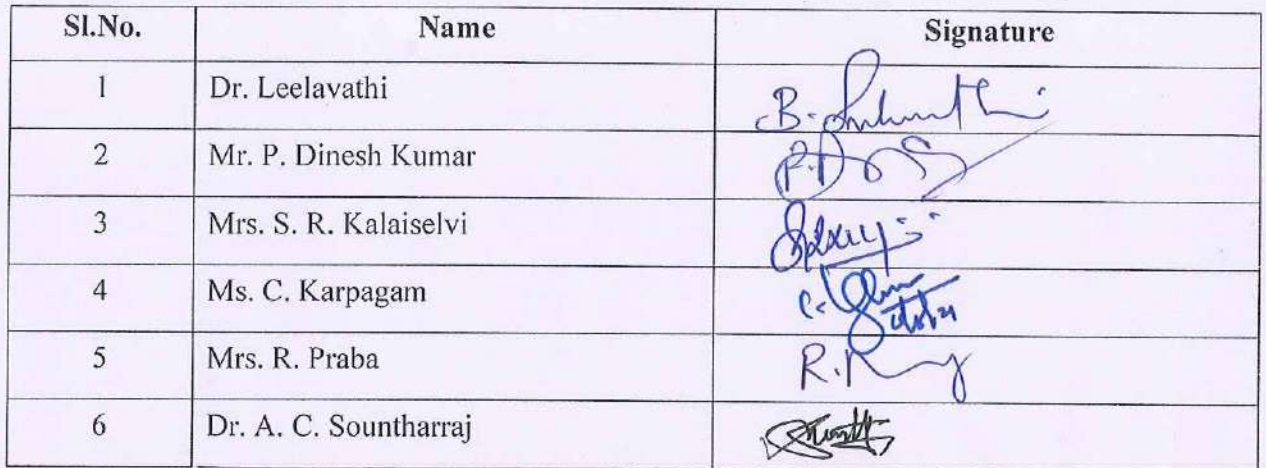 Sl.No. Name Signature
1 Dr. Leelavathi B.
2 Mr. P. Dinesh Kumar
3 Mrs. S. R. Kalaiselvi
4 Ms. C. Karpagam
5 Mrs. R. Praba R.
6 Dr. A. C. Sountharraj